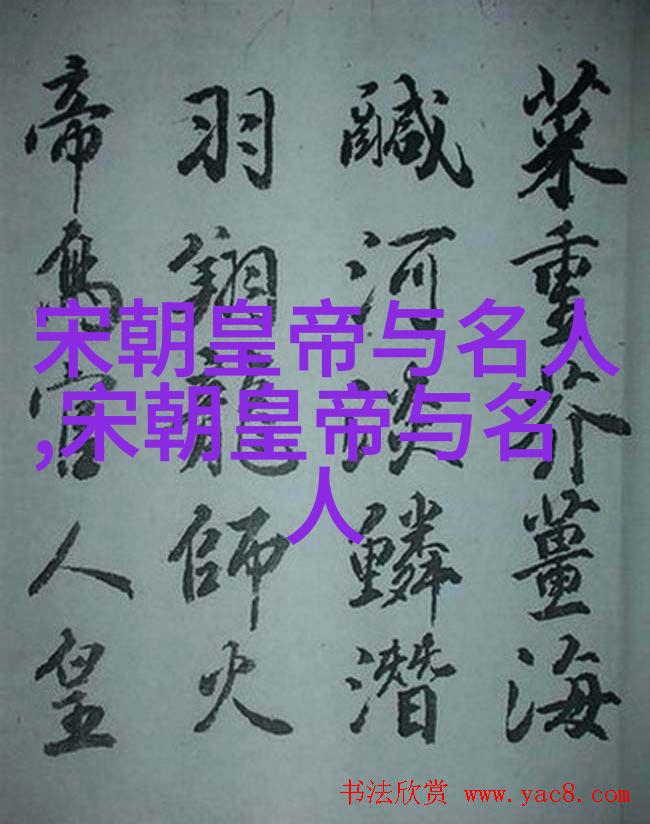 菜重芥薑海
鹹河淡鱗潛
羽翔龍師火
帝鳥官人皇
宋朝皇帝与名人
,宋朝皇帝与名
人
书法欣赏 www.yac8.com